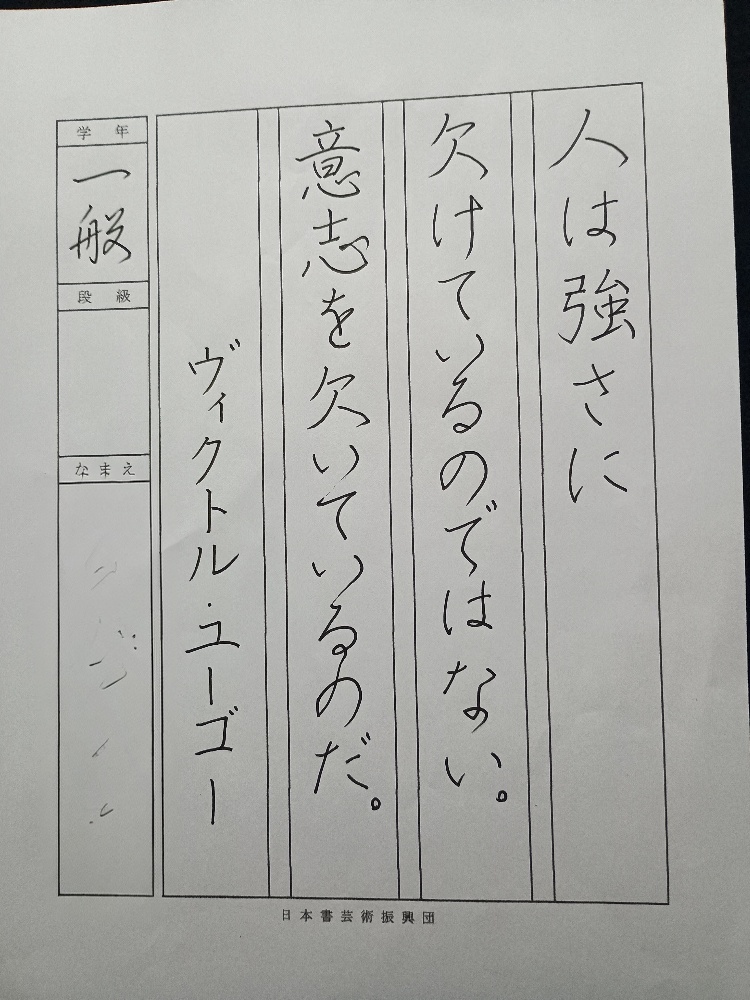 人は強さに
欠けているのではない。
意志を欠いているのだ。
ヴィクトル・ユーゴー
学年
一般
段級
なまえ
日本書芸術振興団